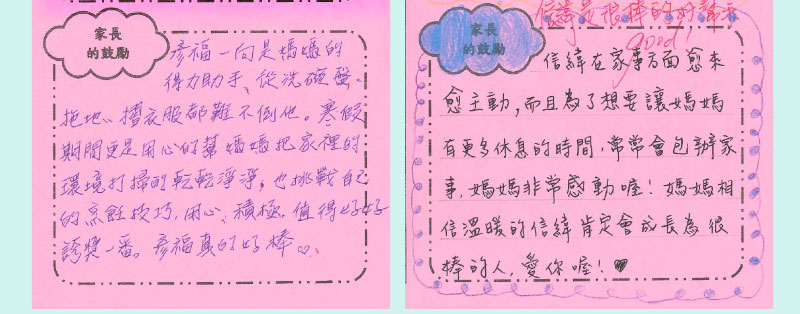 家長
的鼓勵
彥福一向是媽媽的
得力助手、從洗碗盤、
拖地、摺衣服都難不倒他。寒假
期間更是用心的幫媽媽把家裡的
環境打掃的乾乾淨淨;也挑戰自己
的烹飪技巧,用心、積極,值得好好
誇獎一番。彥福真的好棒♡。
家長
的鼓勵
good
信緯在家事方面愈來
愈主動,而且為了想要讓媽媽
有更多休息的時間,常常會包辦家
事,媽媽非常感動喔!媽媽相
信溫暖的信緯肯定會成長為很
棒的人,愛你喔!♥